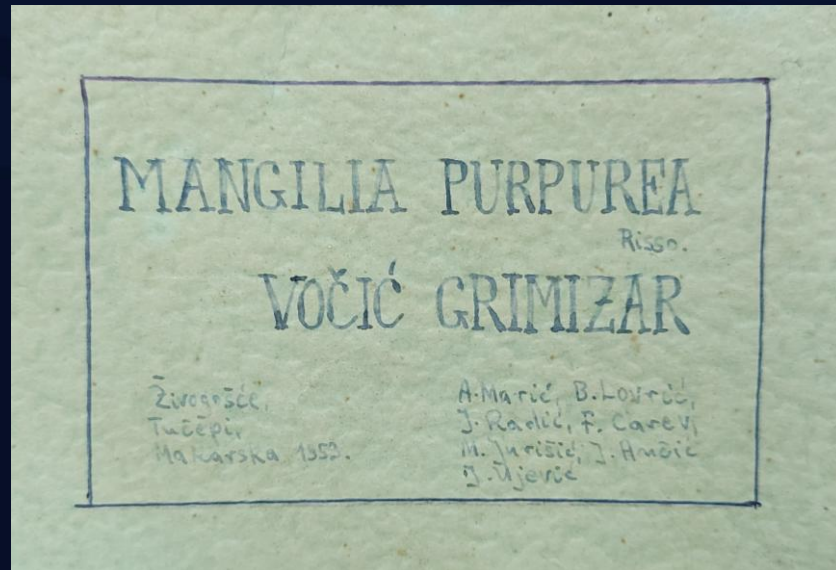 MANGILIA PURPUREA
Risso.
VOČIĆ GRIMIZAR
Živogošće,
Tučepi,
Makarska 1953.
A. Marić, B. Lovrić,
J. Radić, F. Carev,
M. Jurišić, J. Ančić
J. Ujević